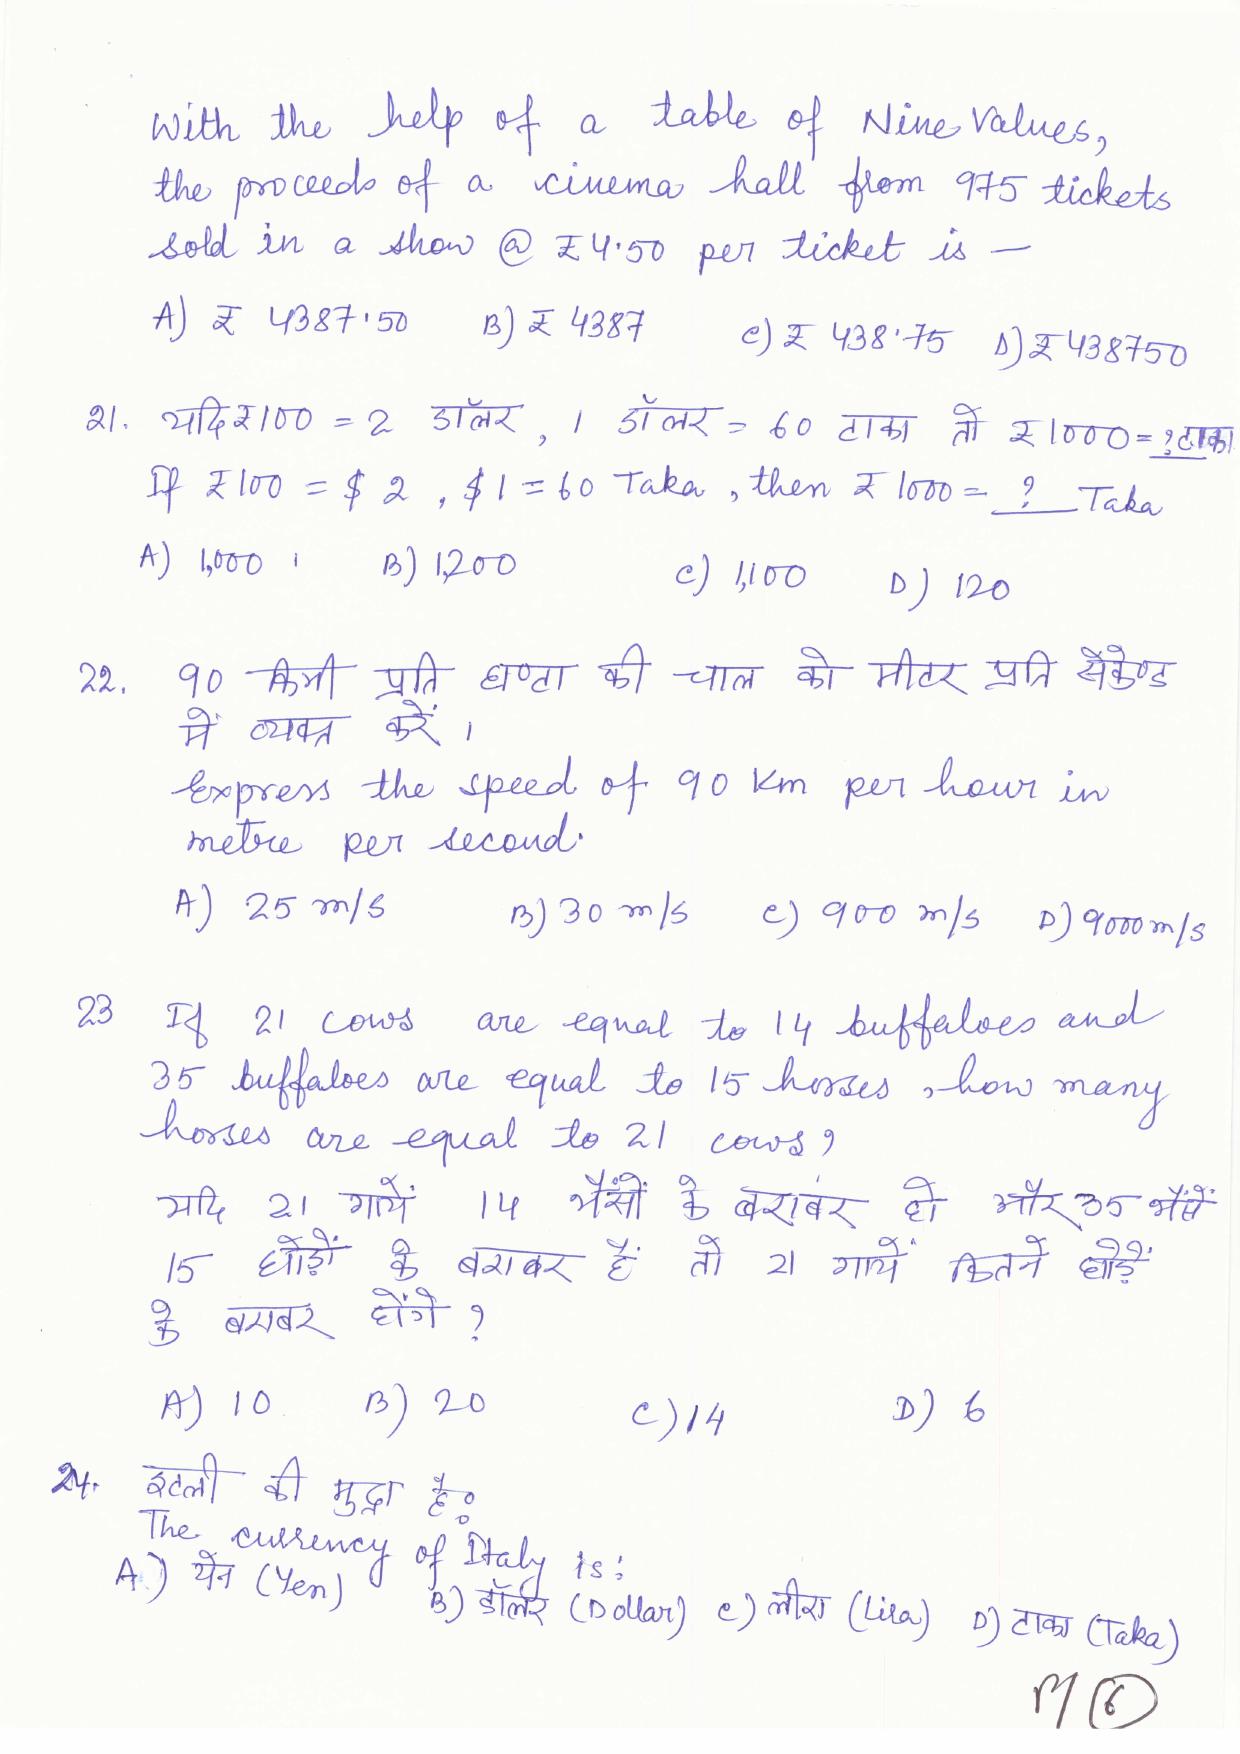 With the help of a table of Nine Values,
the proceeds of a cinema hall from 975 tickets
sold in a show @ ₹4.50 per ticket is —
A) ₹ 4387.50 B) ₹ 4387 C) ₹ 438.75 D) ₹ 438750
21. यदि ₹100 = 2 डॉलर, 1 डॉलर = 60 टाका तो ₹1000 = ? टाका
If ₹100 = $ 2, $1 = 60 Taka, then ₹1000 = ? Taka
A) 1,000 B) 1,200 C) 1,100 D) 120
22. 90 किमी प्रति घण्टा की चाल को मीटर प्रति सेकेण्ड
में व्यक्त करें ।
Express the speed of 90 Km per hour in
metre per second.
A) 25 m/s B) 30 m/s C) 900 m/s D) 9000 m/s
23 If 21 cows are equal to 14 buffaloes and
35 buffaloes are equal to 15 horses, how many
horses are equal to 21 cows?
यदि 21 गायें 14 भैंसों के बराबर हो और 35 भैंसें
15 घोड़ों के बराबर हैं तो 21 गायें कितने घोड़ें
के बराबर होंगे ?
A) 10 B) 20 C) 14 D) 6
24. इटली की मुद्रा है:
The currency of Italy is:
A) येन (Yen) B) डॉलर (Dollar) C) लीरा (Lira) D) टाका (Taka)
M/6